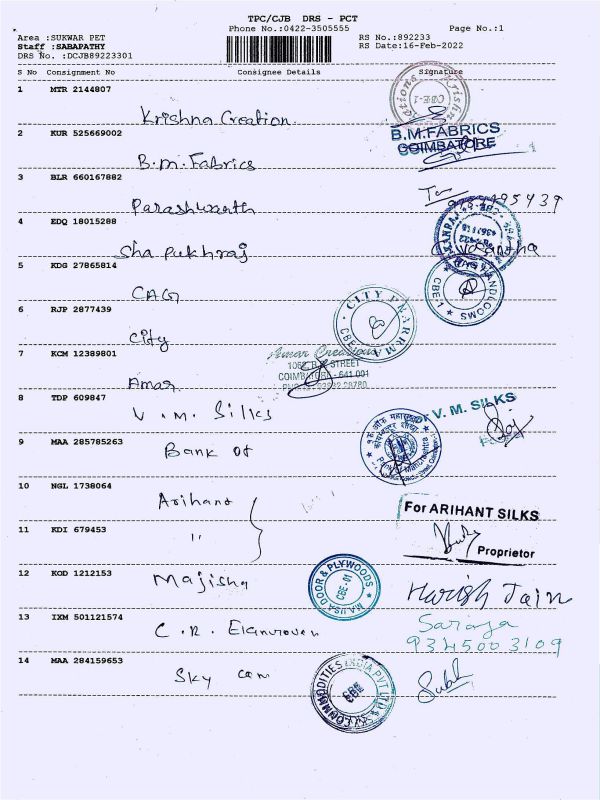 TPC/CJB DRS - PCT
Phone No.:0422-3505555 Page No.:1
Area :SUKWAR PET RS No.:892233
Staff :SABAPATHY RS Date:16-Feb-2022
DRS No. :DCJB89223301
S No Consignment No Consignee Details Signature
1 MTR 2144807
Krishna Creation
CBE-1
2 KUR 525669002
B.M.FABRICS
COIMBATORE
B.M. Fabrics
3 BLR 660167882
Parashwanth
4 EDQ 18015288
Sha pukhraj
5 KDG 27865814
HANDLOOMS
CBE-1
CAG
6 RJP 2877439
CITY PHARRMA
CBE
City
7 KCM 12389801
Amar Creations
STREET
COIMBATORE - 641 001
Amar
8 TDP 609847
V. M. SILKS
V. M. Silks
9 MAA 285785263
Bank of
10 NGL 1738064
Arihant
For ARIHANT SILKS
11 KDI 679453
"
Proprietor
12 KOD 1212153
MAJISA DOOR & PLYWOODS
CBE-01
Majisha
Harish Jain
13 IXM 501121574
Saroja
9345003109
C.R.
14 MAA 284159653
SKY COMMODITIES INDIA PVT LTD
CBE
Sky com